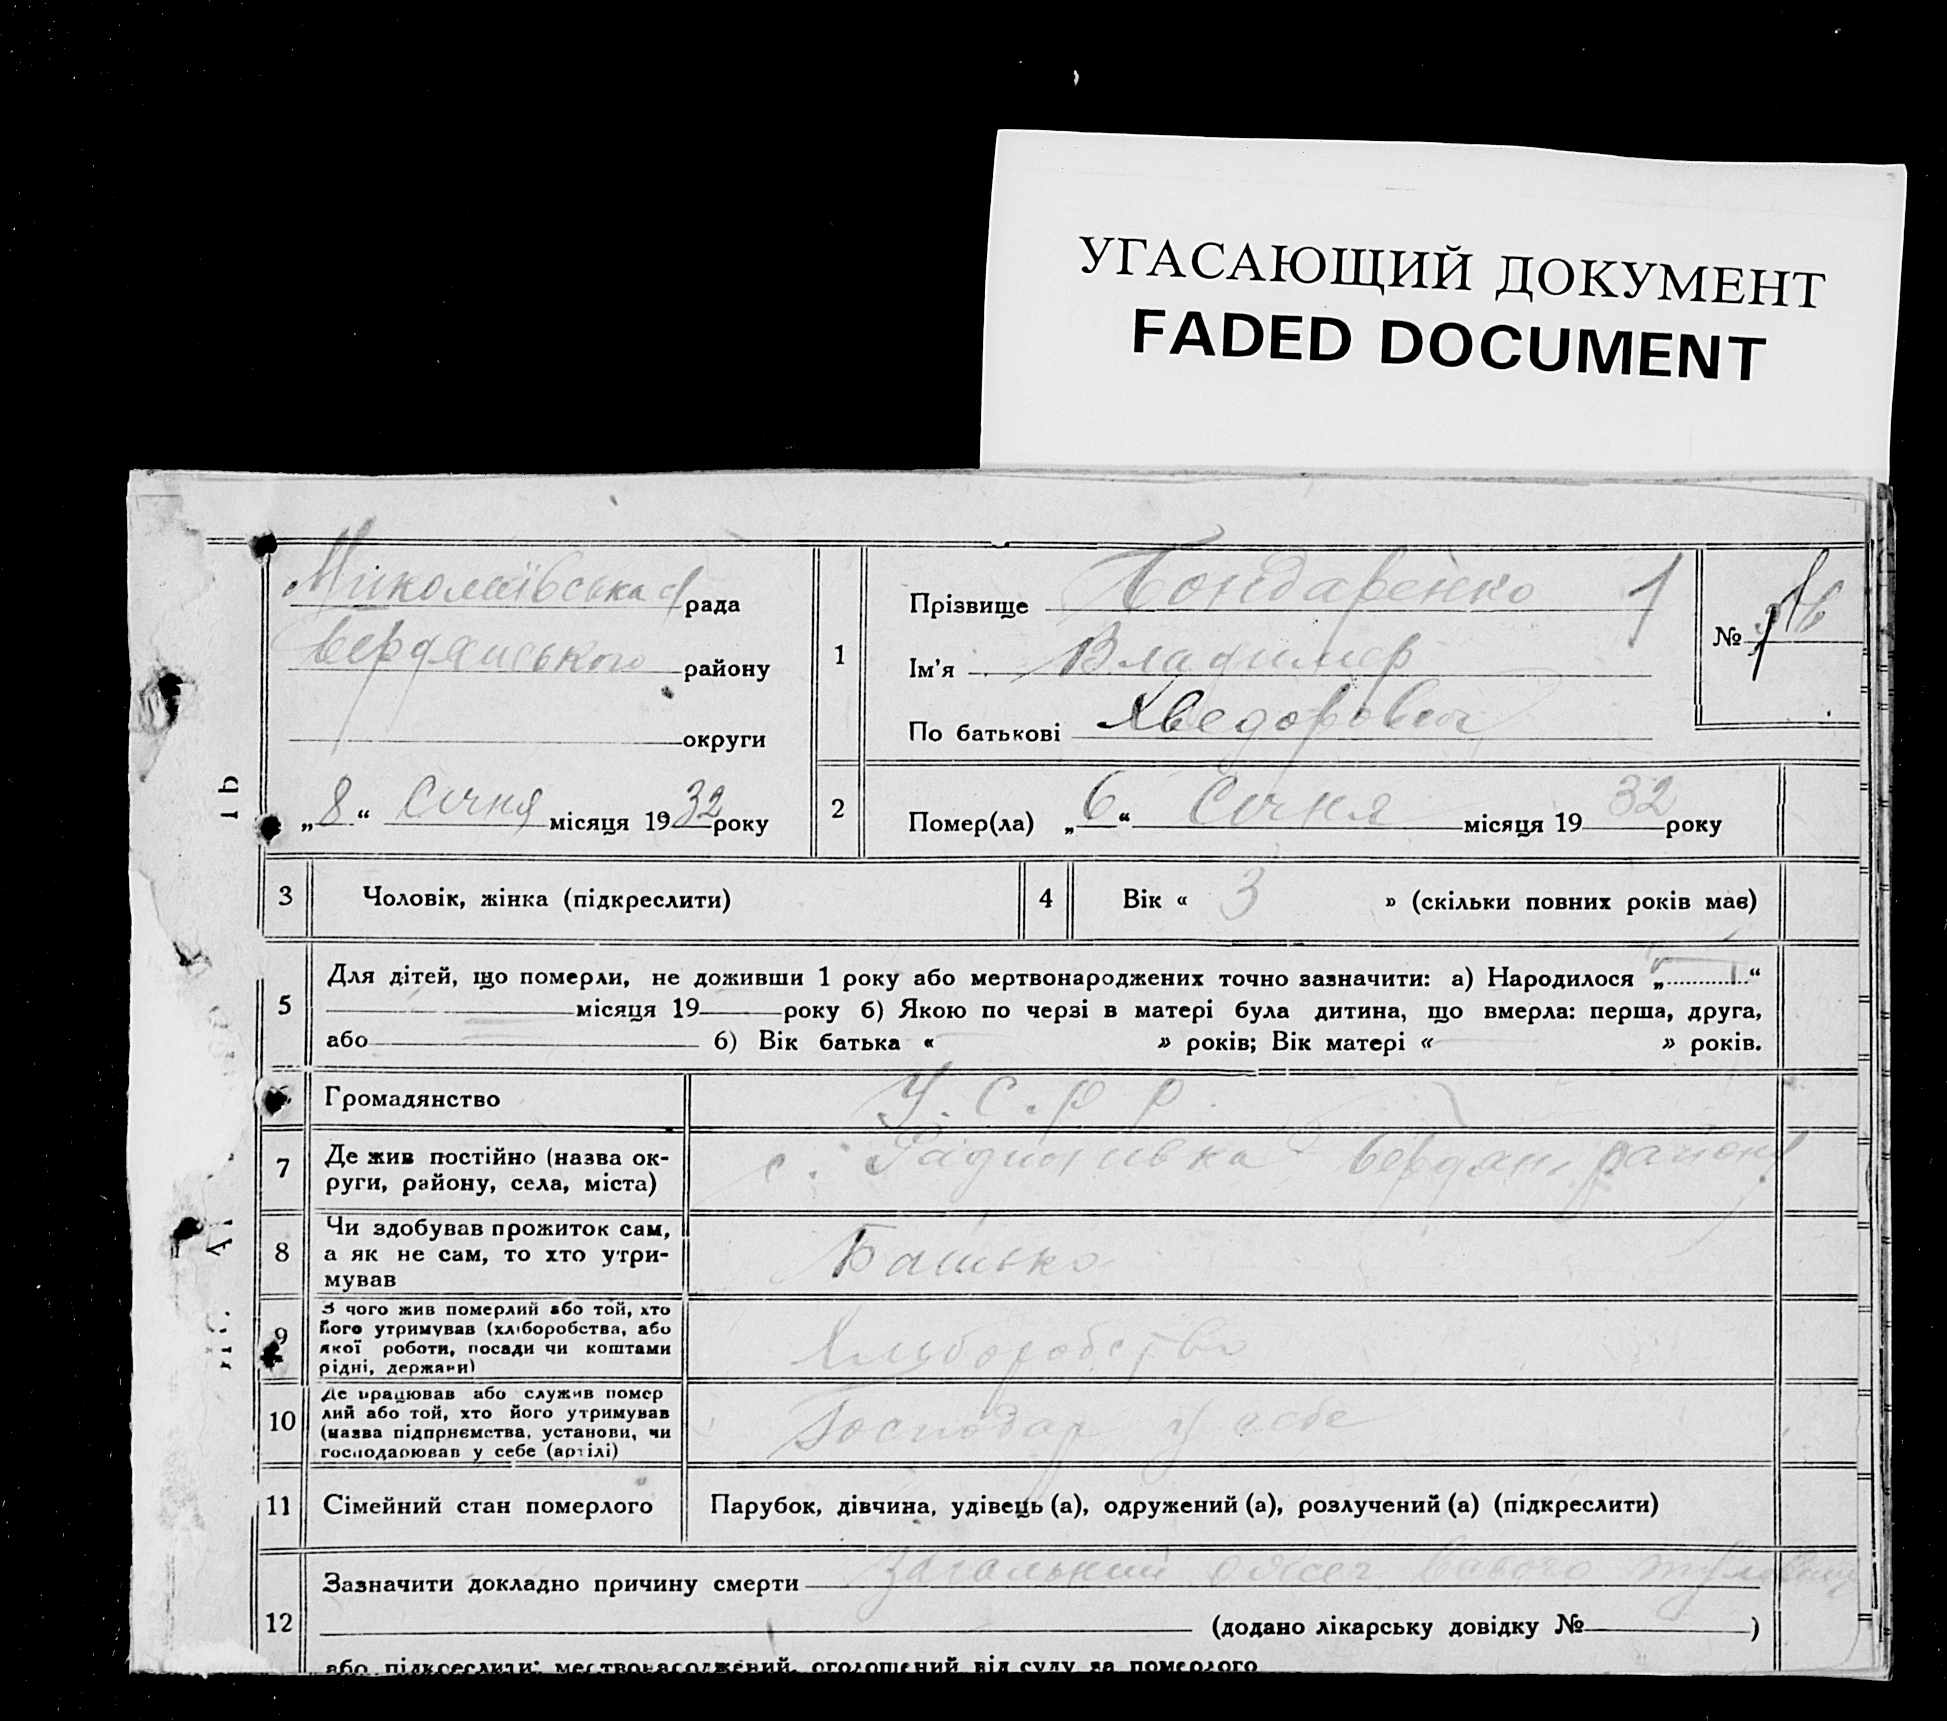 УГАСАЮЩИЙ ДОКУМЕНТ
FADED DOCUMENT
Миколаївська рада
Бердянського району
округи
„8“ Січня місяця 1932 року
1
Прізвище Бондаренко 1
Ім’я Владимер
По батькові Хведорович
№
2
Помер(ла) „6“ Січня місяця 1932 року
3 Чоловік, жінка (підкреслити)
4 Вік « 3 » (скільки повних років має)
5 Для дітей, що померли, не доживши 1 року або мертвонароджених точно зазначити: а) Народилося „ “
місяця 19 року б) Якою по черзі в матері була дитина, що вмерла: перша, друга,
або б) Вік батька « » років; Вік матері « » років.
Громадянство У.С.Р.Р.
7 Де жив постійно (назва ок-
руги, району, села, міста) с. Бердян. району
8 Чи здобував прожиток сам,
а як не сам, то хто утри-
мував Батько
9 З чого жив померлий або той, хто
його утримував (хліборобства, або
якої роботи, посади чи коштами
рідні, держави) Хлиборобство
10 Де працював або служив помер
лий або той, хто його утримував
(назва підприємства, установи, чи
господарював у себе (артілі) Господар у себе
11 Сімейний стан померлого Парубок, дівчина, удівець (а), одружений (а), розлучений (а) (підкреслити)
12 Зазначити докладно причину смерти Загальний
(додано лікарську довідку № )
або підкреслити: мертвонароджений, оголошений від суду за померлого